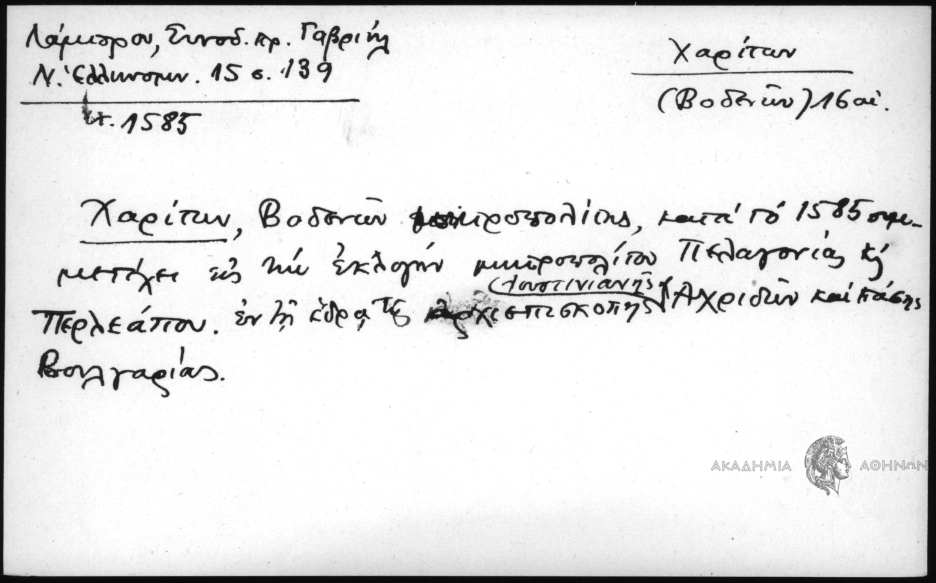 Λάμπρου, Συνοδ. πρ. Γαβριήλ
Ν. Ἑλληνομν. 15 σ. 139
ἔτ. 1585
Χαρίτων
(Βοδενῶν) 16 αἰ.
Χαρίτων, Βοδενῶν μητροπολίτης, κατά τό 1585 συμ-
μετέχει εἰς τήν ἐκλογήν μητροπολίτου Πελαγονίας κ̀
(Ἰουστινιανῆς)
Περλεάπου. ἐν τῇ ἕδρᾳ τῆς ἀρχιεπισκοπῆς Ἀχριδῶν καί πάσης
Βουλγαρίας.
ΑΚΑΔΗΜΙΑ ΑΘΗΝΩΝ